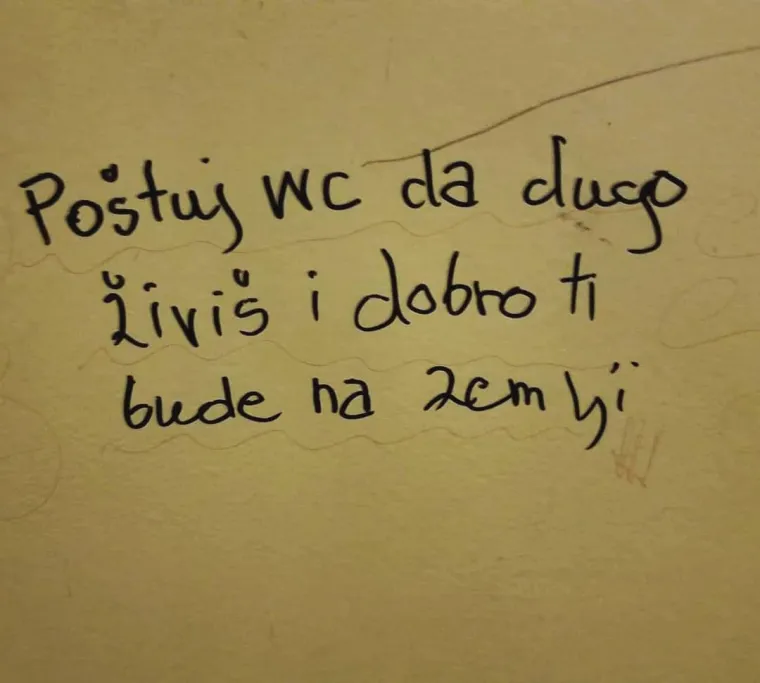 Poštuj WC da dugo
živiš i dobro ti
bude na zemlji